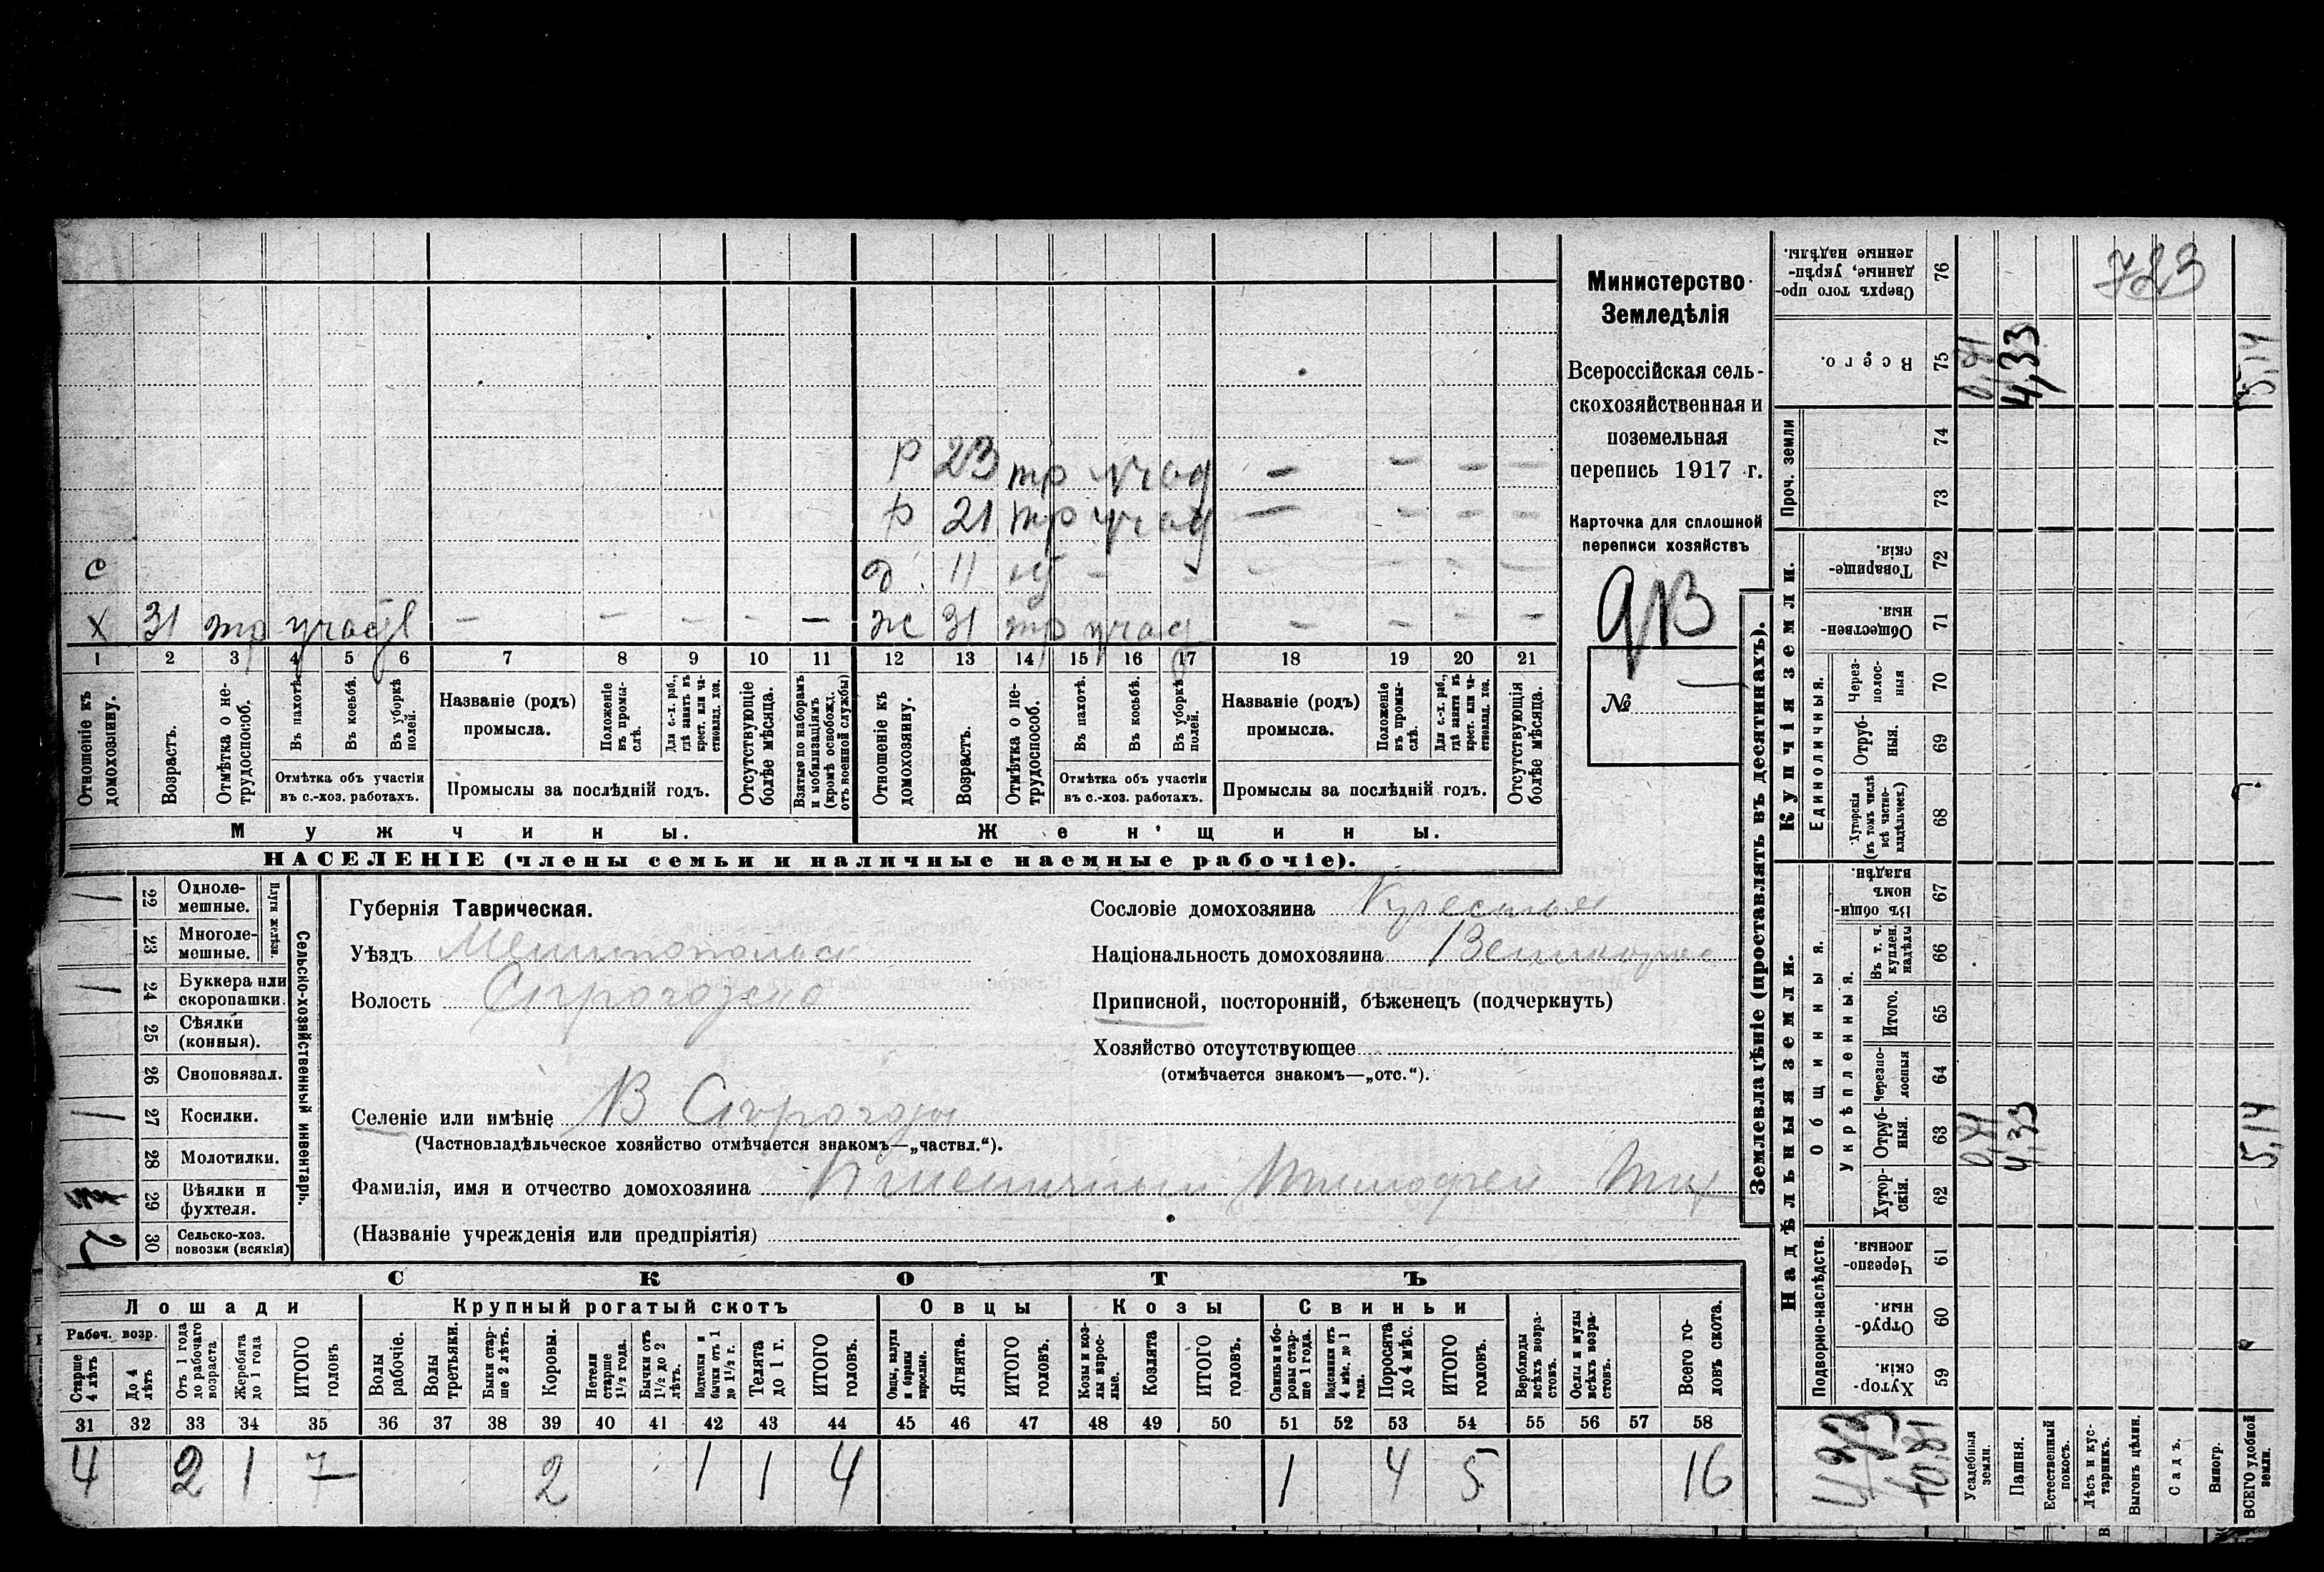 Министерство
Земледѣлія
Всероссійская сель-
скохозяйственная и
поземельная
перепись 1917 г.
Карточка для сплошной
переписи хозяйствъ
№
р 23 тр —  — — —
р 21 тр — — — —
с д 11 — — — — — —
х 31 тр — — — — — ж 31 тр — — — —
1 2 3 4 5 6 7 8 9 10 11 12 13 14 15 16 17 18 19 20 21
Отношеніе къ домохозяину.
Возрастъ.
Отмѣтка о не-трудоспособ.
Въ пахотѣ.
Въ косьбѣ.
Въ уборкѣ полей.
Отмѣтка объ участіи
въ с.-хоз. работахъ.
Названіе (родъ)
промысла.
Положеніе въ промы-слѣ.
Для с.-х. раб., гдѣ занятъ въ крест. или ча-стновлад. хоз.
Промыслы за послѣдній годъ.
Отсутствующіе болѣе мѣсяца.
Взятые по наборамъ и мобилизаціямъ (кромѣ освобожд. отъ военной службы)
Отношеніе къ домохозяину.
Возрастъ.
Отмѣтка о не-трудоспособ.
Въ пахотѣ.
Въ косьбѣ.
Въ уборкѣ полей.
Отмѣтка объ участіи
въ с.-хоз. работахъ.
Названіе (родъ)
промысла.
Положеніе въ промы-слѣ.
Для с.-х. раб., гдѣ занята въ крест. или ча-стновлад. хоз.
Промыслы за послѣдній годъ.
Отсутствующія болѣе мѣсяца.
Мужчины. Женщины.
НАСЕЛЕНІЕ (члены семьи и наличные наемные рабочіе).
Сельско-хозяйственный инвентарь.
Плуги желѣзн.
1 22 Одноле-мешные.
23 Многоле-мешные.
1 24 Буккера или скоропашки.
25 Сѣялки (конныя).
26 Сноповязал.
1 27 Косилки.
28 Молотилки.
29 Вѣялки и фухтеля.
2 30 Сельско-хоз. повозки (всякія)
Губернія Таврическая.
Уѣздъ Мелитопольск
Волость
Селеніе или имѣніе
(Частновладѣльческое хозяйство отмѣчается знакомъ—„частвл.“).
Фамилія, имя и отчество домохозяина
(Названіе учрежденія или предпріятія)
Сословіе домохозяина
Національность домохозяина Великорос
Приписной, посторонній, бѣженецъ (подчеркнуть)
Хозяйство отсутствующее
(отмѣчается знакомъ—„отс.“).
СКОТЪ
Лошади Крупный рогатый скотъ Овцы Козы Свиньи
Рабоч. возр.
Старше 4 лѣтъ
До 4 лѣтъ
Отъ 1 года до рабочаго возраста
Жеребята до 1 года
ИТОГО головъ
Волы рабочіе.
Волы третьяки.
Быки стар-ше 2 лѣтъ.
Коровы.
Нетели старше 1½ года.
Бычки отъ 1½ до 2 лѣтъ.
Подтелки и бычки отъ 1 до 1½ г.
Телята до 1 г.
ИТОГО головъ.
Овцы, валухи и бараны взрослые.
Ягнята.
ИТОГО головъ.
Козы и коз-лы взрос-лые.
Козлята
ИТОГО головъ.
Свиньи и бо-ровы стар-ше 1 года.
Подсвинки отъ 4 мѣс. до 1 года.
Поросята до 4 мѣс.
ИТОГО головъ.
Верблюды всѣхъ возра-стовъ.
Ослы и мулы всѣхъ возра-стовъ.
Всего го-ловъ скота.
31 32 33 34 35 36 37 38 39 40 41 42 43 44 45 46 47 48 49 50 51 52 53 54 55 56 57 58
4 2 1 7 2 1 1 4 1 4 5 16
Землевладѣніе (проставлять въ десятинахъ).
Надѣльныя земли. Купчія земли. Проч. земли
Подворно-наслѣдств.
Общинныя.
Укрѣпленныя.
Единоличныя.
Хутор-скія. 59
Отруб-ныя. 60
Черезпо-лосныя. 61
Хутор-скія. 62
Отруб-ныя. 63
Черезпо-лосныя 64
Итого. 65
Въ т. ч. куплен. надѣлы 66
Въ общи-номъ владѣн. 67
Хуторскія (въ томъ числѣ всѣ частно-владѣльческ.) 68
Отруб-ныя. 69
Через-полос-ныя 70
Обществен-ныя. 71
Товарище-скія. 72
73
74
Всего. 75
Сверхъ того про-данные, укрѣп-ленные надѣлы. 76
Усадебныя земли. 0,81 0,81
Пашня. 4,33 4,33
Естественный покосъ.
Лѣсъ и кус-тарникъ.
Выгонъ цѣлин.
Садъ.
Виногр.
ВСЕГО удобной земли. 5,14 5,14
723